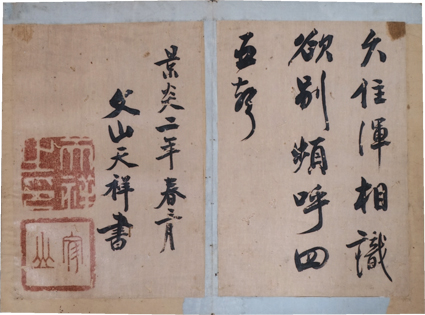 久住渾相識
欲別頻呼四
五聲
景炎二年春三月
文山天祥書